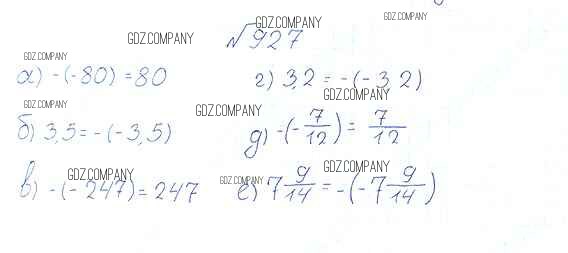 GDZ.COMPANY GDZ.COMPANY
GDZ.COMPANY №927
GDZ.COMPANY
а) -(-80) = 80 г) 3,2 = -(-3,2)
GDZ.COMPANY GDZ.COMPANY
GDZ.COMPANY
б) 3,5 = -(-3,5) д) -(-7/12) = 7/12
GDZ.COMPANY GDZ.COMPANY
GDZ.COMPANY
в) -(-247) = 247 е) 7 9/14 = -(-7 9/14)